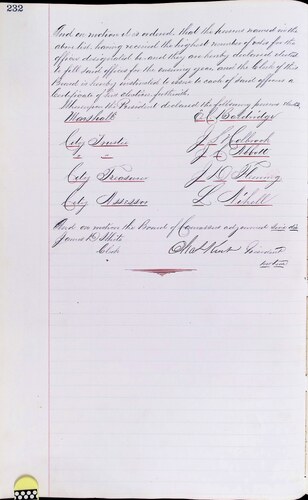 232
And on motion it is ordered, that the persons named in the
above list, having received the highest number of votes for the
offices designated be and they are hereby declared elected
to fill said offices for the ensuing year and the Clerk of this
Board is hereby instructed to issue to each of said officers a
Certificate of his election forthwith.
Whereupon the President declared the following persons elected,
Marshall E C Baldridge
City Trustee J L Holbrook
" " J C Abbott
City Treasurer J D Fleming
City Assessor L Nihell
And on motion the Board of Canvassers adjourned sine die
James D White
Clerk President